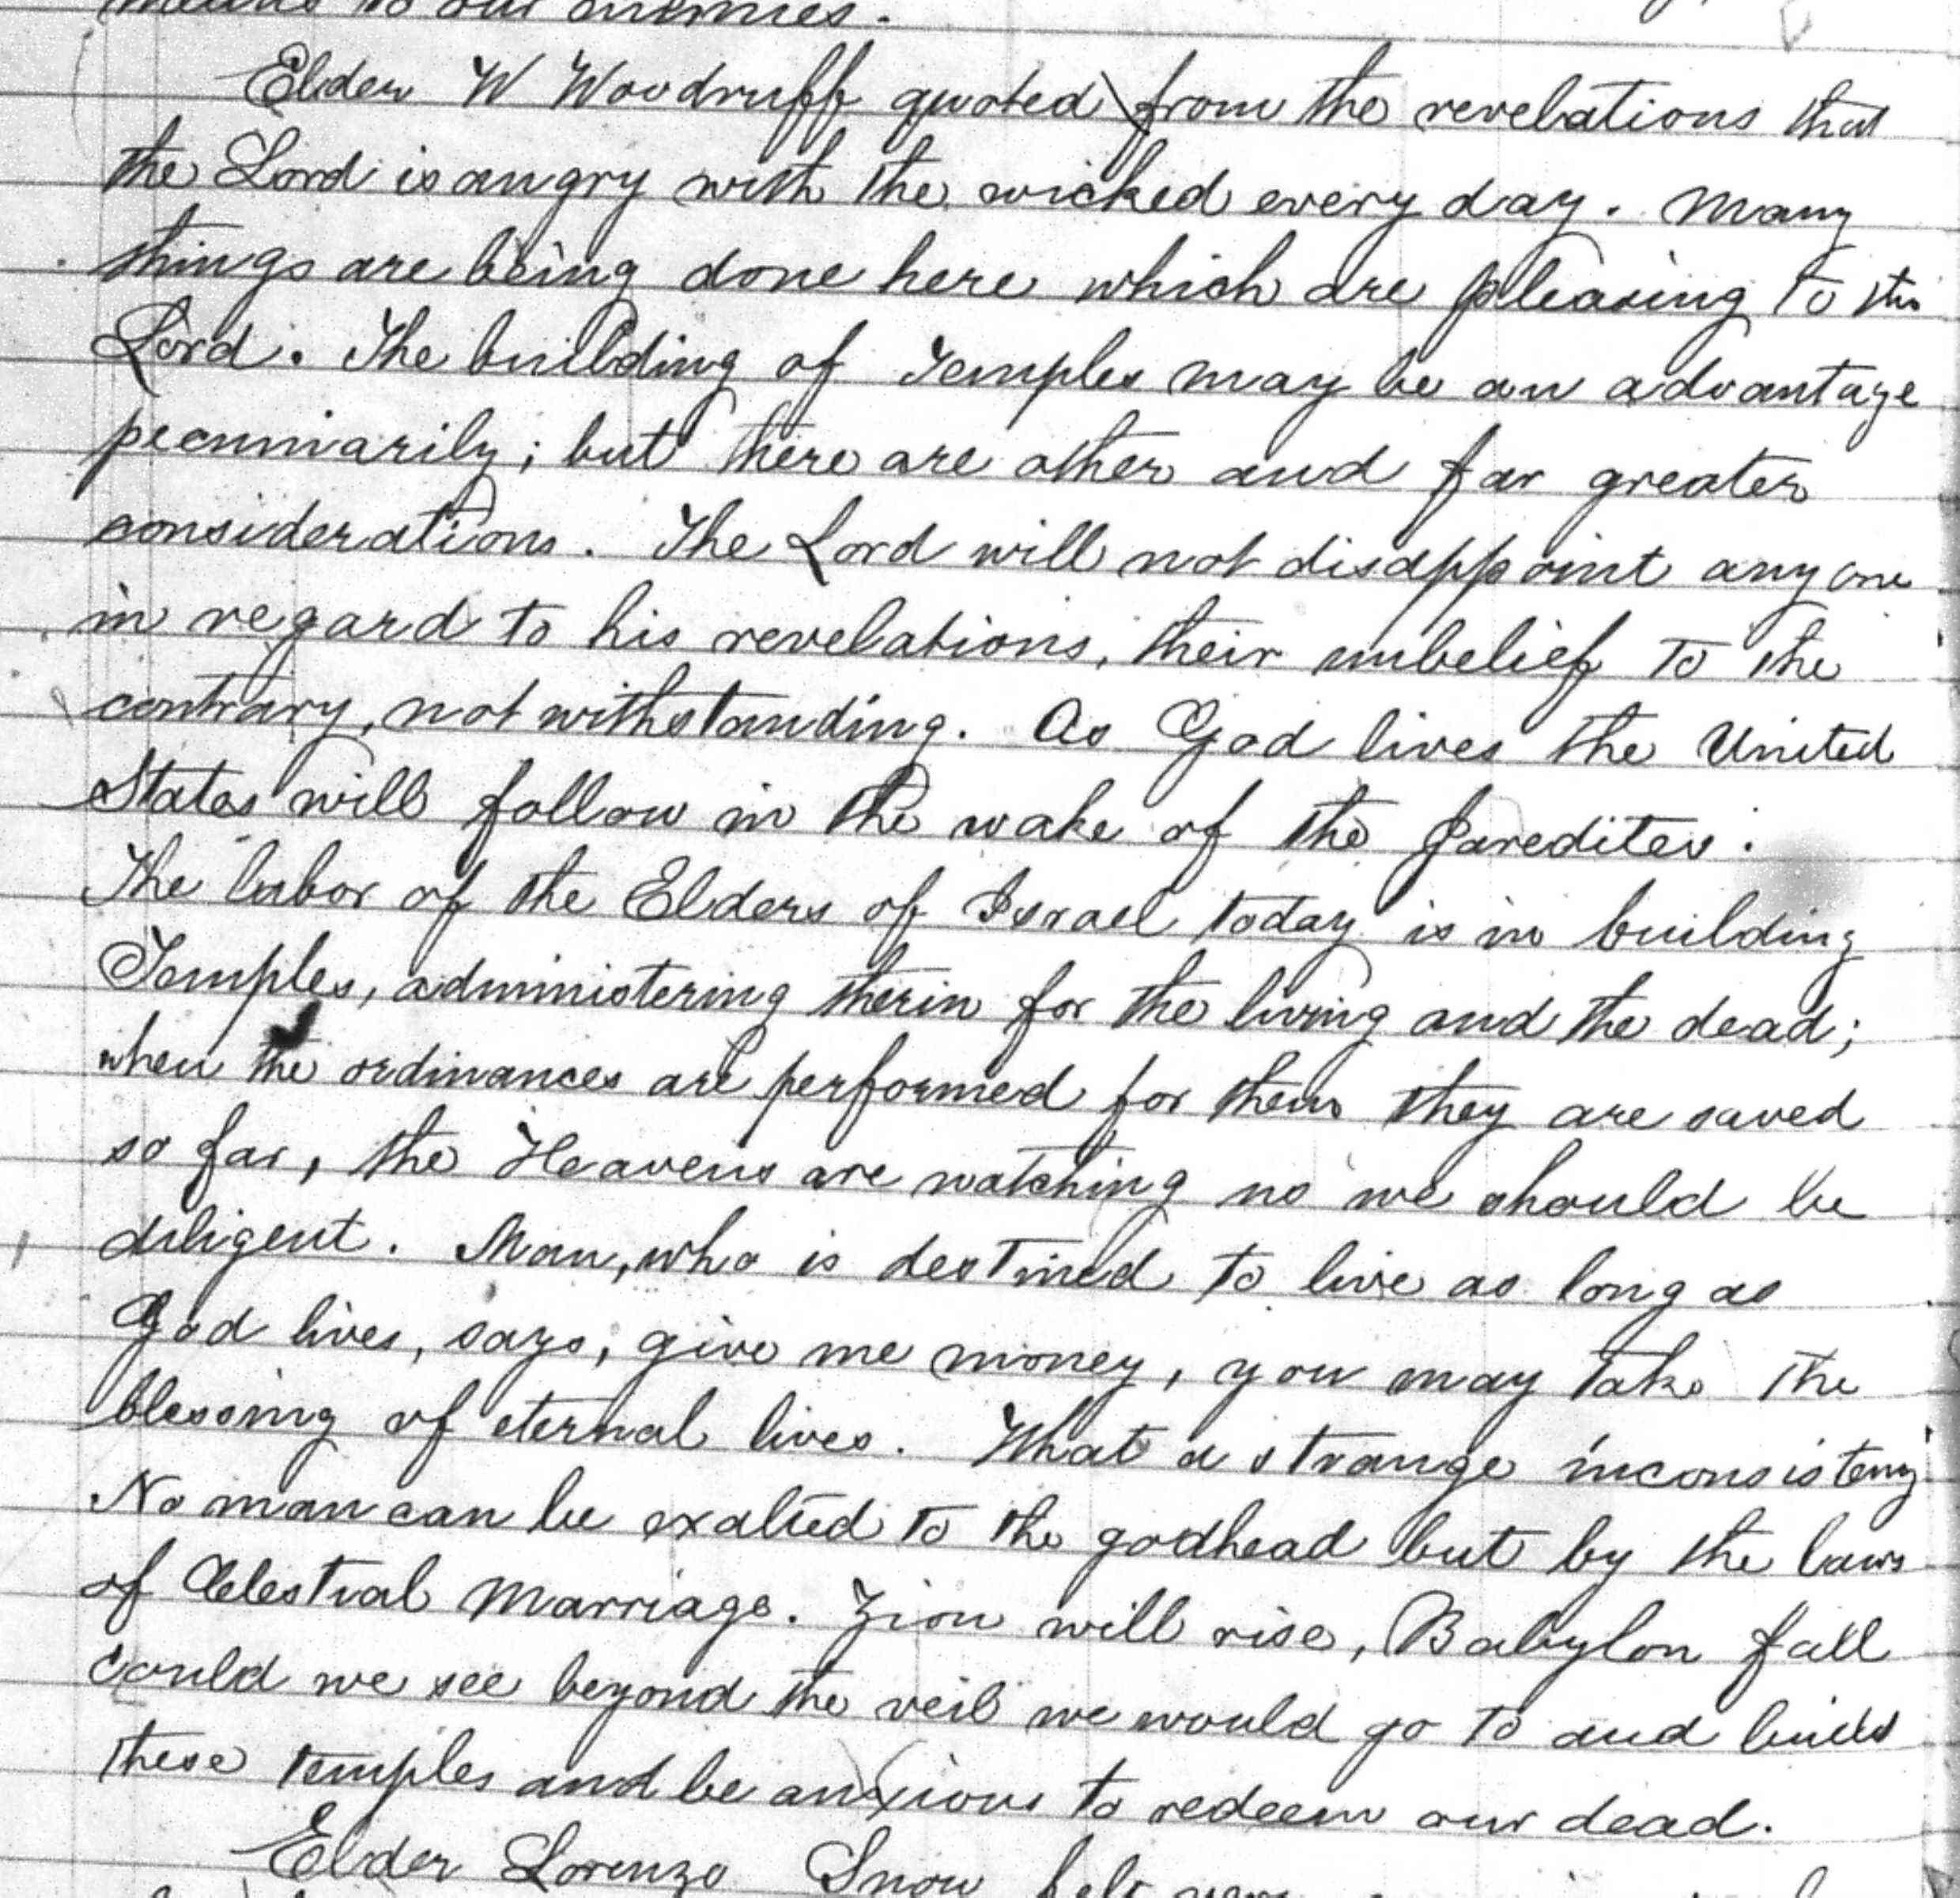 means to our enemies.
Elder W Woodruff quoted from the revelations that
the Lord is angry with the wicked every day. Many
things are being done here which are pleasing to the
Lord. The building of Temples may be an advantage
pecuniarily; but there are other and far greater
considerations. The Lord will not disappoint any one
in regard to his revelations, their unbelief to the
contrary, notwithstanding. As God lives the United
States will follow in the wake of the Jaredites.
The labor of the Elders of Israel today is in building
Temples, administering therin for the living and the dead;
when the ordinances are performed for them they are saved
so far, the Heavens are watching us we should be
diligent. Man, who is destined to live as long as
God lives, says, give me money, you may take the
blessing of eternal lives. What a strange inconsistency
No man can be exalted to the godhead but by the laws
of Celestial Marriage. Zion will rise, Babylon fall
could we see beyond the veil we would go to and build
these temples and be anxious to redeem our dead.
Elder Lorenzo Snow felt